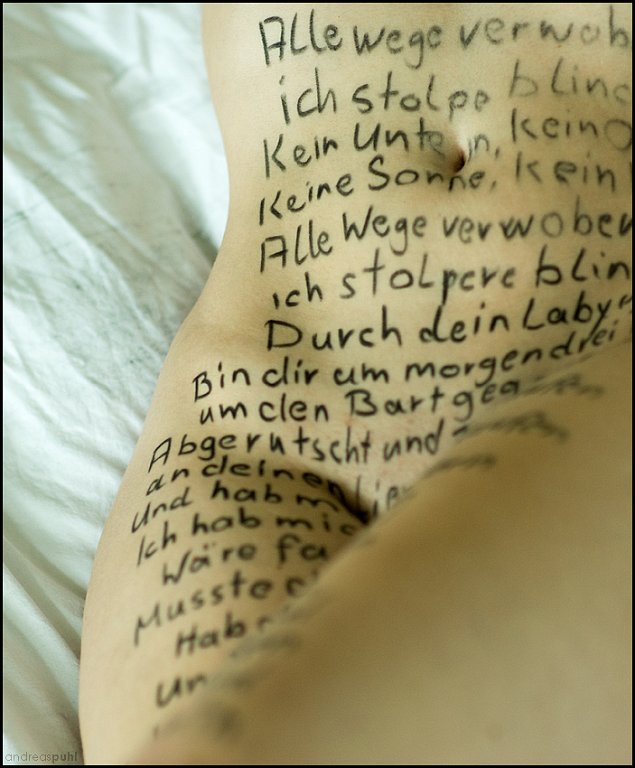 Alle wege verwob
ich stolpe blind
Kein Unten, kein O
Keine Sonne, kein
Alle Wege verwoben
ich stolpere blin
Durch dein Laby
Bin dir um morgendrei
um den Bart gega
Abgerutscht und
an deinen
Und hab m
Ich hab mic
Wäre fa
Musste
Hab
un
andreaspuhl